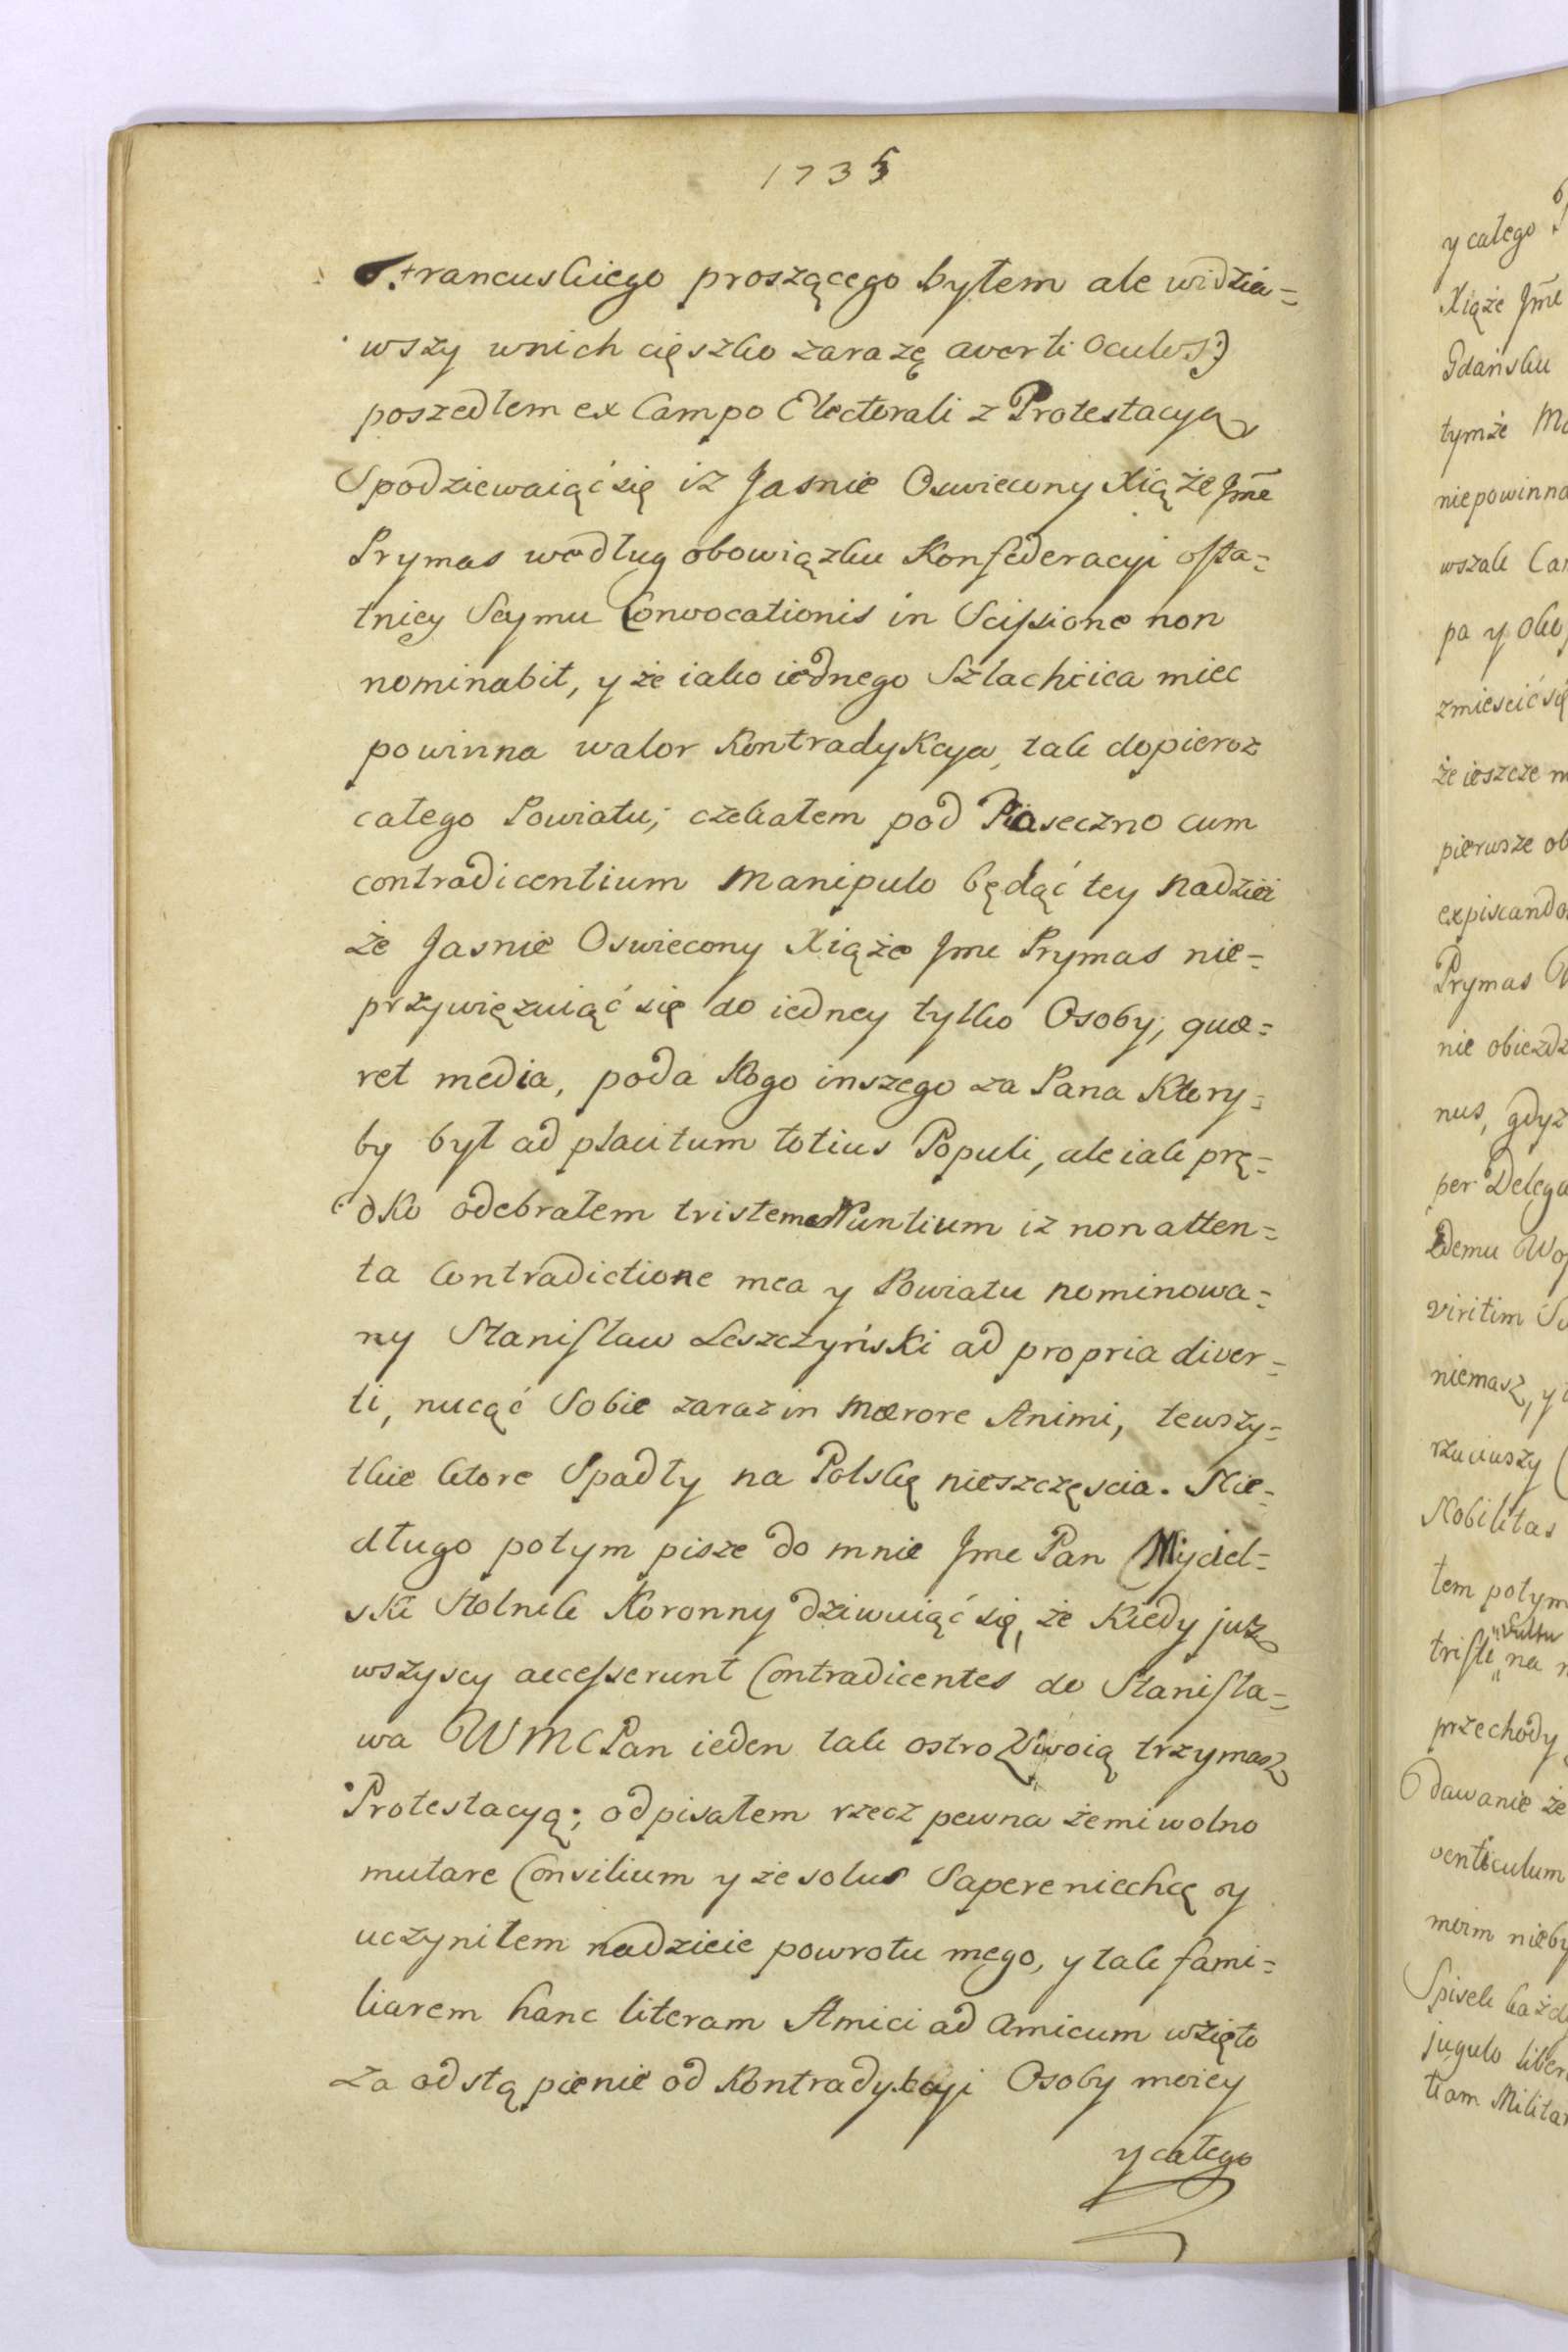 1735
Francuskiego proszącego byłem ale widzia=
wszy wnich cięszko zarazę averti oculos:)
poszedłem ex Campo Electorali z Protestacyą
Spodziewaiąć się iz Jasnie Oswiecony Xiąże Jme
Prymas według obowiązku Konfederacyi osta=
tniey Seymu Convocationis in Scissione non
nominabit, y że iako iednego Szlachcica miec
powinna walor Kontradykcya, tak dopieroz
całego Powiatu; czekałem pod Piaseczno cum
contradicentium Manipulo będąć tey Nadziei
że Jasnie Oswiecony Xiąże Jme Prymas nie=
przywięzuiąć się do iedney tylko Osoby, quæ=
ret media, poda Kogo inszego za Pana Ktory=
by był ad placitum totius Populi, ale iak prę=
dko odebrałem tristem Nuntium iz non atten=
ta Contradictione mea y Powiatu nominowa=
ny Stanisław Leszczyński ad propria diver=
ti, nucąć Sobie zaraz in mœrore Animi, tewszy=
tkie ktore Spadły na Polskę nieszczęscia. Nie=
długo potym pisze do mnie Jme Pan Myciel=
ski Stolnik Koronny dziwuiąć się, że Kiedy już
wszyscy accesserunt Contradicentes do Stanisła=
wa WMCPan ieden tak ostro Swoią trzymasz
Protestacyą; odpisałem rzecz pewna żemi wolno
mutare Consilium y że solus Sapere niechcę y
uczyniłem nadzieie powrotu mego, y tak fami=
liarem hanc literam Amici ad Amicum wzięto
za odstąpienie od Kontradykcyi Osoby moiey
y całego
y całego
Xiąże Jme
Gdańsku
tymże
niepowinna
wszak
pa y
zmiescić się
że ieszcze
pierwsze
expiscando
Prymas
nie
nus, gdyz
per
viritim
niemasz,
Nobilitas
tem potym
vultu
tristi na
przechody
dawanie że
venticulum
moim
Spisek
jugulo
tiam